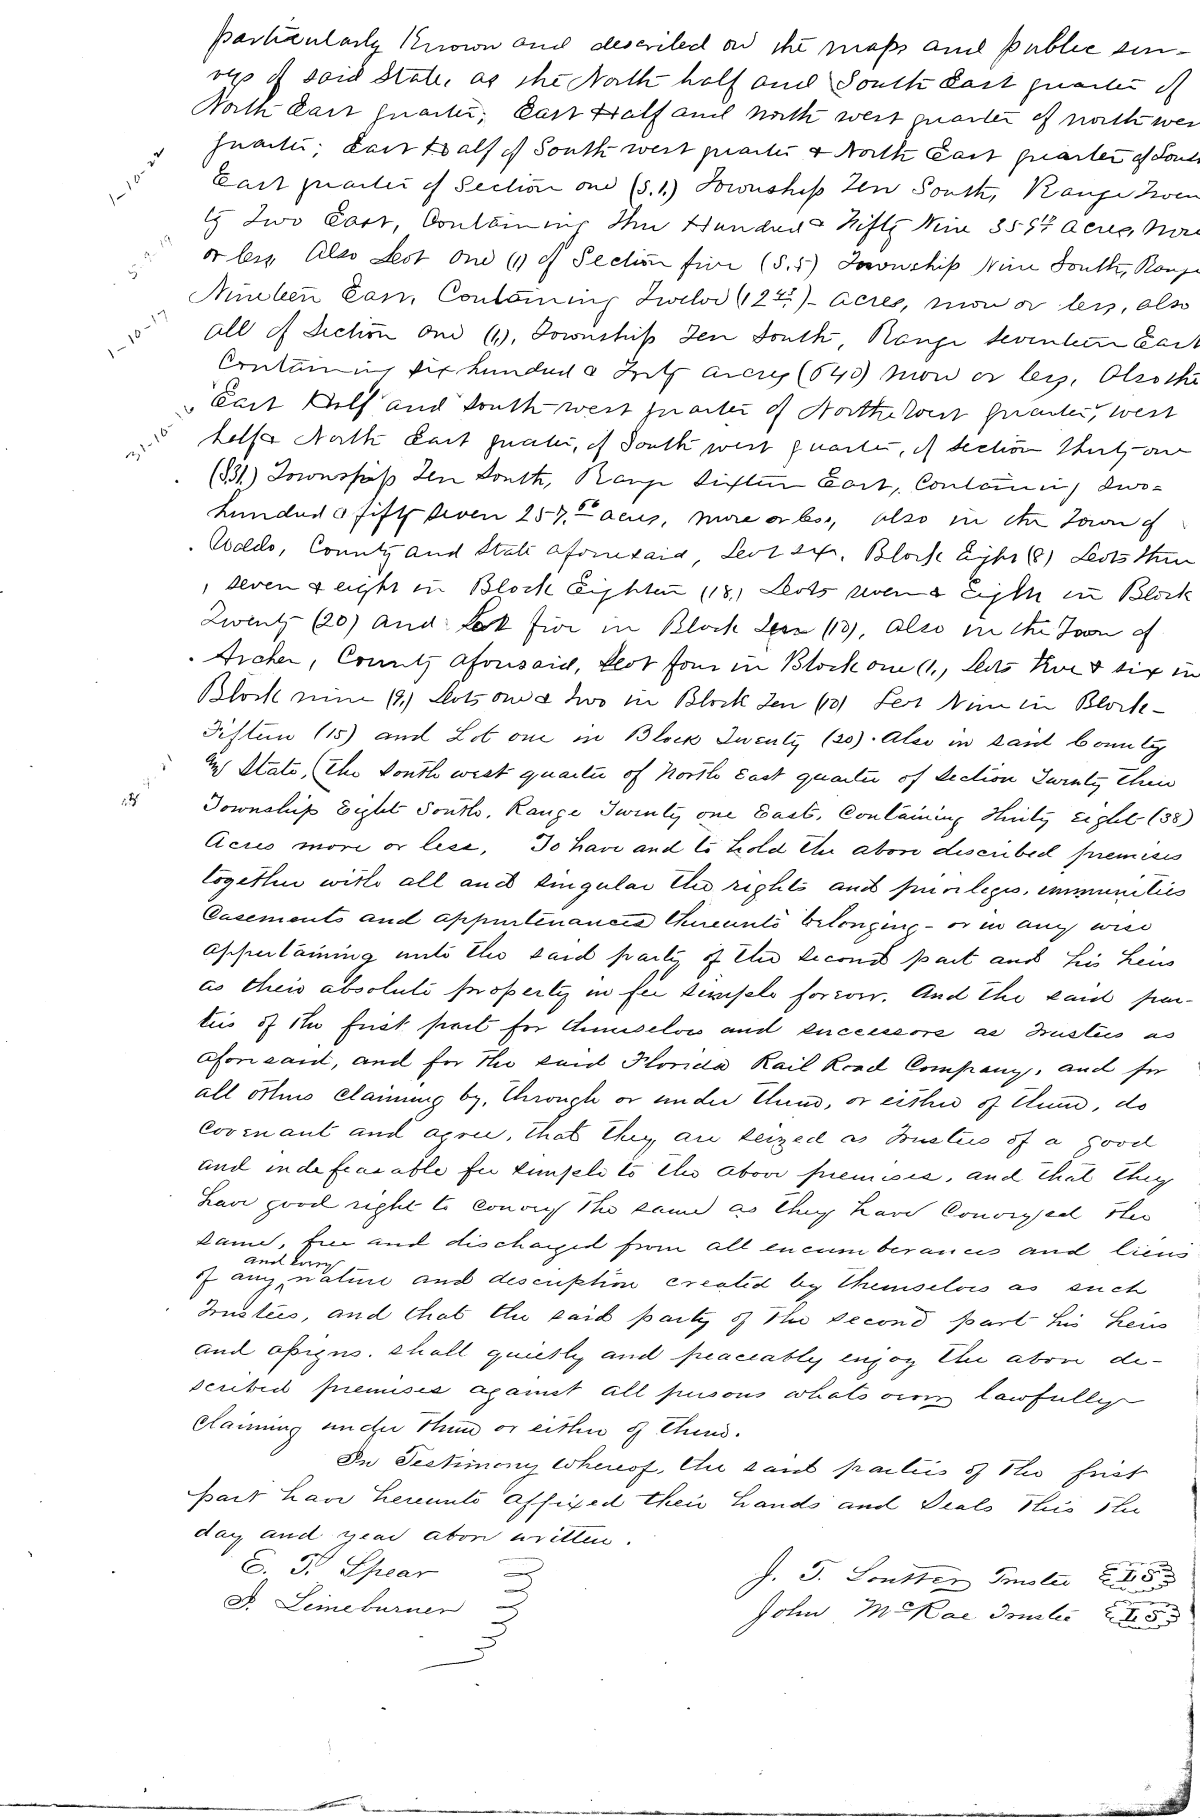 particularly Known and described on the maps and public sur-
veys of said State, as the North half and South East quarter of
North East quarter; East Half and North west quarter of north wes
1-10-22
quarter; East Half of South west quarter & North East quarter of South
East quarter of Section one (S.1.) Township Ten South, Range Twen
ty Two East, Containing Three Hundred & Fifty Nine 359 acres, more
or less Also Lot one (1) of Section five (S.5) Township Nine South, Range
Nineteen East, Containing Twelve (12 acres, more or less, also
1-10-17
all of Section one (1), Township Ten South, Range seventeen East
Containing six hundred & forty acres (640) more or less. Also the
31-10-16
East Half and South-west quarter of North West quarter, west
half & North East quarter, of South west quarter, of section thirty-one
(S31.) Township Ten South, Range sixteen East, Containing two-
hundred & fifty seven 257. acres, more or less, also in the Town of
Waldo, County and State aforesaid, Lot six, Block Eight (8) Lots three
, seven & eight in Block Eighteen (18,) Lots seven & Eight in Block
Twenty (20) and Lot five in Block Ten (10), also in the Town of
Archer, County aforesaid, Lot four in Block one (1,) Lots five & six in
Block nine (9,) Lots one & two in Block Ten (10) Lot Nine in Block-
Fifteen (15) and Lot one in Block Twenty (20). Also in said County
& State, (the South west quarter of North East quarter of Section Twenty three
Township Eight South, Range Twenty one East, Containing thirty eight (38)
Acres more or less, To have and to hold the above described premises
together with all and singular the rights and privileges, immunities
Easements and appurtenances thereunto belonging- or in any wise
appertaining unto the said party of the second part and his heirs
as their absolute property in fee simple forever. And the said par-
ties of the first part for themselves and successors as Trustees as
aforesaid, and for the said Florida Rail Road Company, and for
all others claiming by, through or under them, or either of them, do
Covenant and agree, that they are seized as Trustees of a good
and indefeasable fee simple to the above premises, and that they
have good right to convey the same as they have Conveyed the
same, free and discharged from all encumberances and liens
and every
of any nature and description created by themselves as such
Trustees, and that the said party of the second part his heirs
and assigns. shall quietly and peaceably enjoy the above de-
scribed premises against all persons whatsoever lawfully
claiming under them or either of them.
In Testimony Whereof, the said parties of the first
part have hereunto affixed their hands and Seals this the
day and year above written.
E. T. Spear
J. T. Soutter Trustee L S
S. Limeburner
John McRae Trustee L S